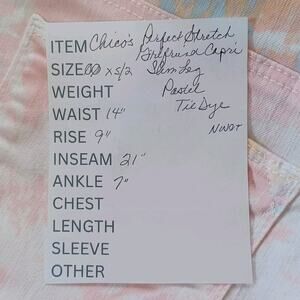 ITEM Chico's Perfect Stretch
Girlfriend Capri
SIZE 00 x 5/2 Slim Leg
WEIGHT Pastel
WAIST 14" Tie Dye
RISE 9" NWOT
INSEAM 21"
ANKLE 7"
CHEST
LENGTH
SLEEVE
OTHER